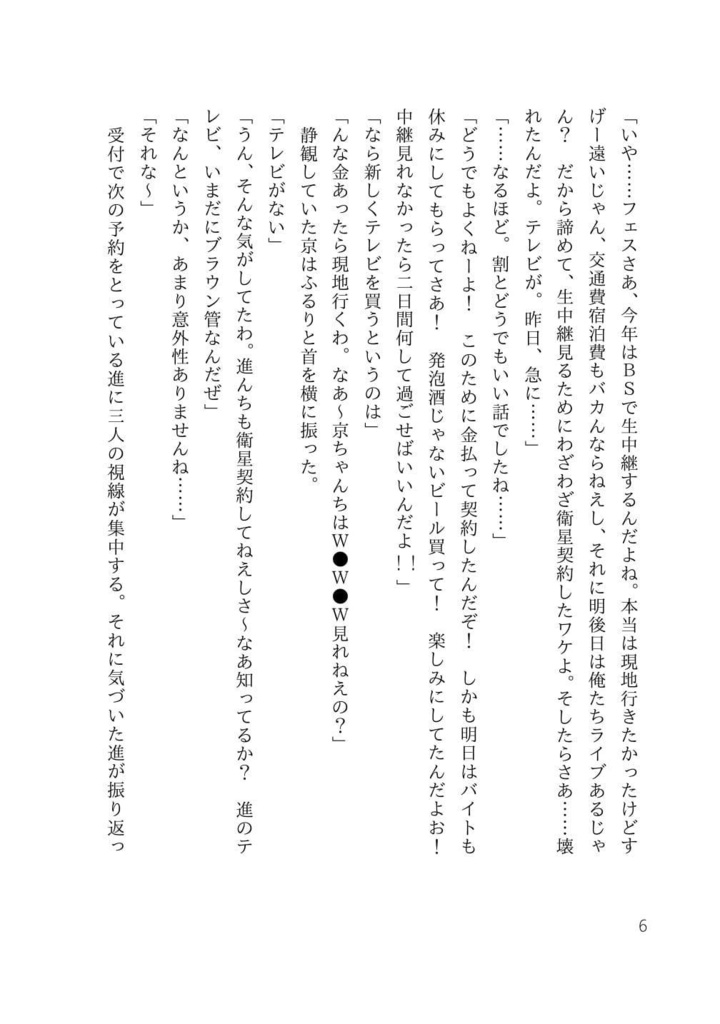 「いや……フェスさあ、今年はＢＳで生中継するんだよね。本当は現地行きたかったけどす
げー遠いじゃん、交通費宿泊費もバカんならねえし、それに明後日は俺たちライブあるじゃ
ん？　だから諦めて、生中継見るためにわざわざ衛星契約したワケよ。そしたらさあ……壊
れたんだよ。テレビが。昨日、急に……」
「……なるほど。割とどうでもいい話でしたね……」
「どうでもよくねーよ！　このために金払って契約したんだぞ！　しかも明日はバイトも
休みにしてもらってさあ！　発泡酒じゃないビール買って！　楽しみにしてたんだよお！
中継見れなかったら二日間何して過ごせばいいんだよ！！」
「なら新しくテレビを買うというのは」
「んな金あったら現地行くわ。なあ～京ちゃんちはＷ●Ｗ●Ｗ見れねえの？」
　静観していた京はふるりと首を横に振った。
「テレビがない」
「うん、そんな気がしてたわ。進んちも衛星契約してねえしさ～なあ知ってるか？　進のテ
レビ、いまだにブラウン管なんだぜ」
「なんというか、あまり意外性ありませんね……」
「それな～」
　受付で次の予約をとっている進に三人の視線が集中する。それに気づいた進が振り返っ
6